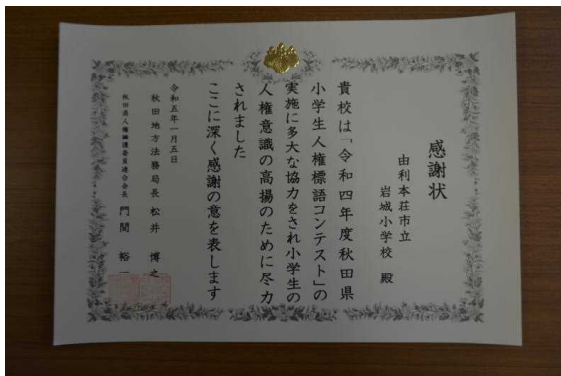 感謝状
由利本荘市立
岩城小学校 殿
貴校は「令和四年度秋田県
小学生人権標語コンテスト」の
実施に多大な協力をされ小学生の
人権意識の高揚のために尽力
されました
ここに深く感謝の意を表します
令和五年一月五日
秋田地方法務局長 松井 博之
秋田県人権擁護委員連合会長 門間 裕一